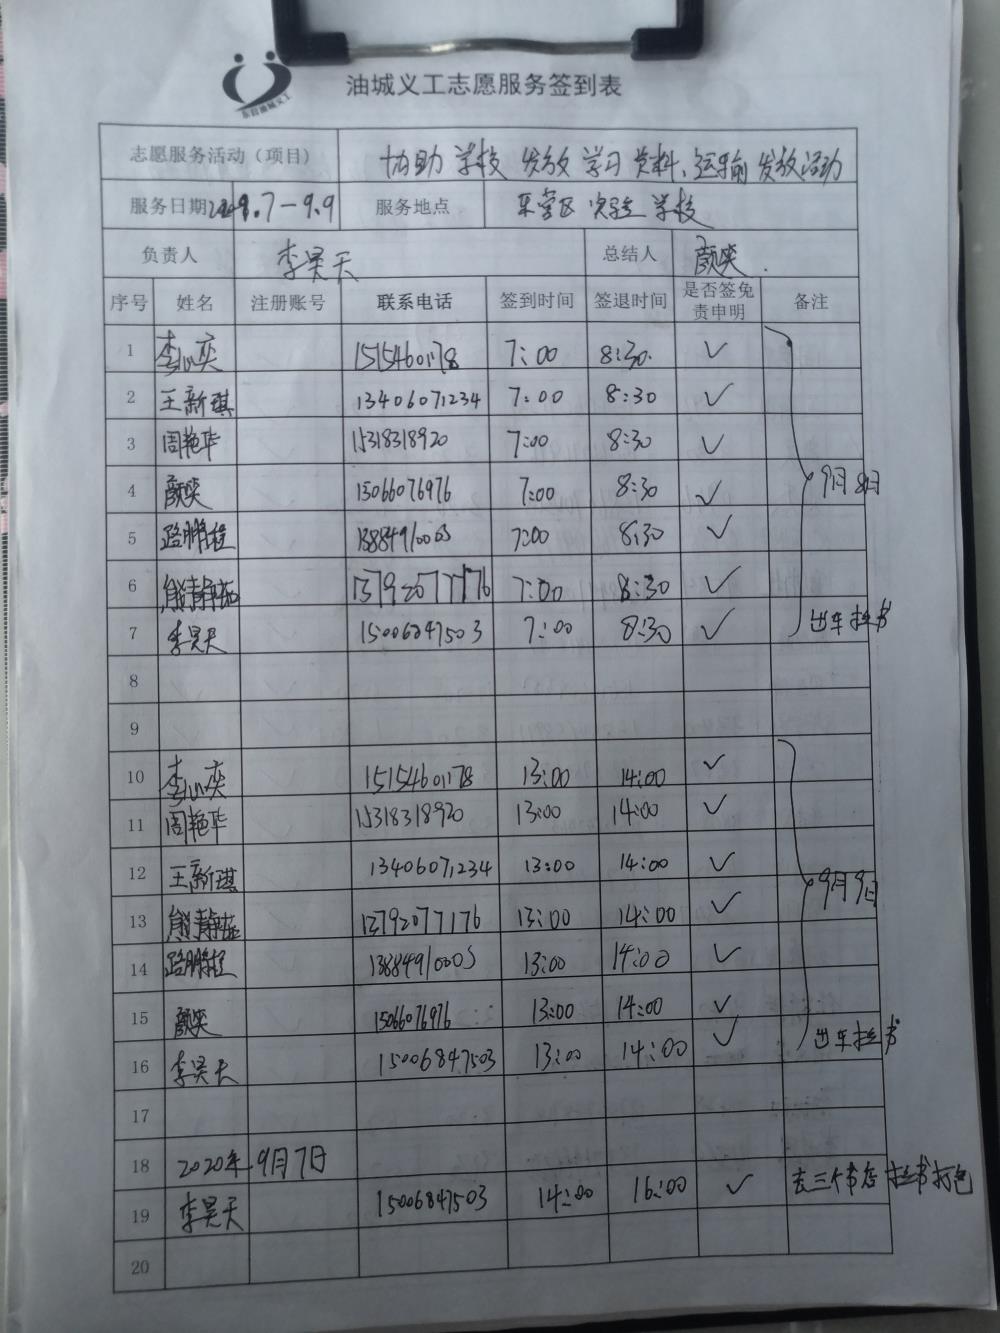 东营油城义工
油城义工志愿服务签到表
志愿服务活动（项目） 协助学校发放学习资料、运输发放活动
服务日期 2020 9.7-9.9 服务地点 东营区实验学校
负责人 李昊天 总结人 颜笑.
序号 姓名 注册账号 联系电话 签到时间 签退时间 是否签免责申明 备注
1 李心奕 15154601178 7:00 8:30. ✓
2 王新琪 13406071234 7:00 8:30 ✓
3 周艳华 15318318920 7:00 8:30 ✓
4 颜笑 15066076976 7:00 8:30 ✓ 9月8日
5 路鹏程 13884910005 7:00 8:30 ✓
6 熊静茹 13792077176 7:00 8:30 ✓
7 李昊天 15006847503 7:00 8:30 ✓ 出车拉书
8
9
10 李心奕 15154601178 13:00 14:00 ✓
11 周艳华 15318318920 13:00 14:00 ✓
12 王新琪 13406071234 13:00 14:00 ✓
13 熊静茹 13792077176 13:00 14:00 ✓ 9月9日
14 路鹏程 13884910005 13:00 14:00 ✓
15 颜笑 15066076976 13:00 14:00 ✓
16 李昊天 15006847503 13:00 14:00 ✓ 出车拉书
17
18 2020年9月7日
19 李昊天 15006847503 14:00 16:00 ✓ 去三个书店拉书打包
20